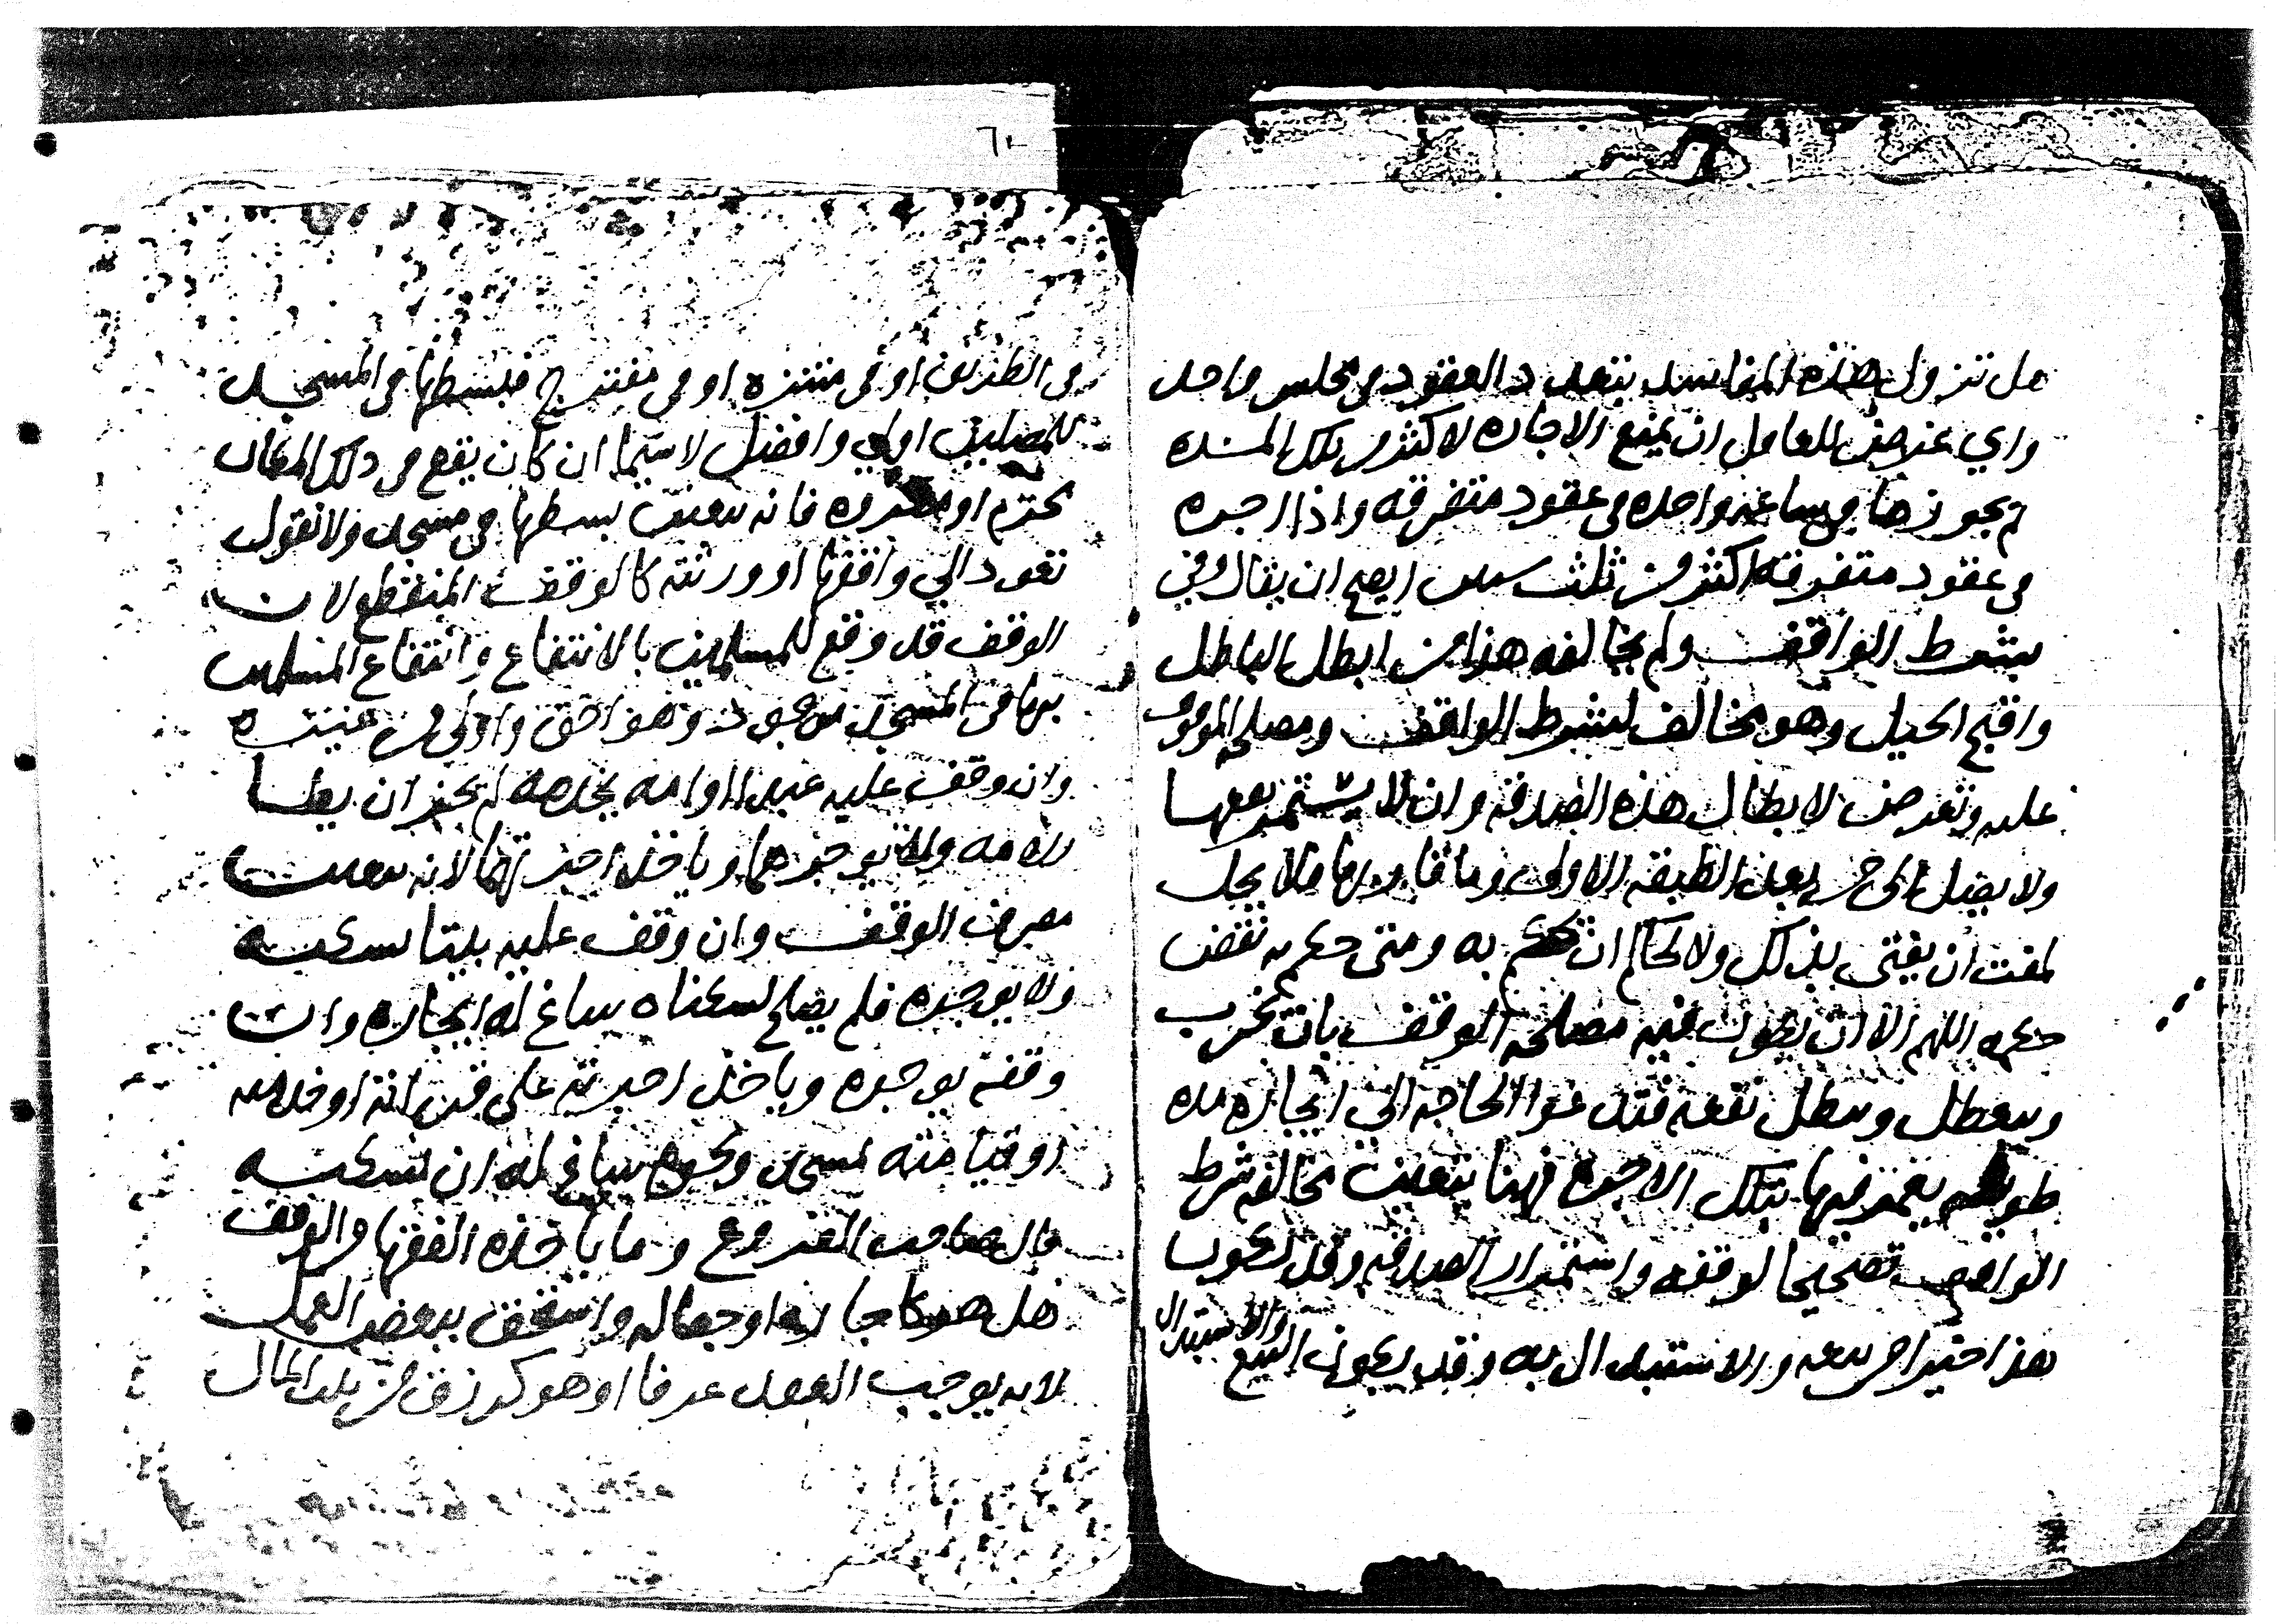 هل تزول هذه المفاسد بتعدد العقود في مجلس واحد
واي غرض للعامل ان يمنع الاجارة لاكثر من تلك المدة
ثم يجوزها في ساعة واحدة في عقود متفرقة واذا اجره
في عقود متفرقة اكثر من ثلث سنين ايصح ان يقال وفي
بشرط الواقف ولم يخالفه هذا من ابطل الباطل
واقبح الحيل وهو مخالف لشرط الواقف ومصلحة الموقوف
عليه وتعرض لابطال هذه الصدقة وان لا يستمر نفعها
ولا يصل الى من بعد الطبقة الاولى وما قاربها فلا يحل
لمفت ان يفتي بذلك ولا لحاكم ان يحكم به ومتى حكم به نقض
حكمه اللهم الا ان يكون فيه مصلحة الوقف بان يخرب
ويتعطل ويبطل نفعه فتدعوا الحاجة الى ايجاره مدة
طويلة يعمر فيها بتلك الاجرة فهنا يتعين مخالفة شرط
الواقف تصحيحا لوقفه واستمرارا لصدقته وقد يكون
هذا خيرا من بيعه والاستبدال به وقد يكون البيع والاستبدال
٦٠
في الطريق او في متنزه او في مفترج فبسطها في المسجد
للمصلين اولى وافضل لا سيما ان كان يقع في ذلك المكان
محرم او مكروه فانه يتعين بسطها في مسجد ولا نقول
تعود الي واقفها او ورثته كالوقف المنقطع لان
الوقف قد وقع للمسلمين بالانتفاع وانتفاع المسلمين
بها في المسجد موجود وهو احق واولى من غيره
وان وقف عليه عبدا او امة يخدمه لم يجز ان يطا
الامة وله يوجرهما وياخذ اجرتهما لانه
مصرف الوقف وان وقف عليه بيتا يسكنه
ولا يوجره فلم يصلح لسكناه ساغ له ايجاره وان
وقفه يوجره وياخذ اجرته على
او قيامته مسجد ونحوه ساغ له ان يسكنه
قال صاحب الفروع وما ياخذه الفقها من الوقف
هل هو كاجارة او جعالة واستحق ببعض العمل
لانه يوجب العمل عرفا او هو كرزق من بيت المال